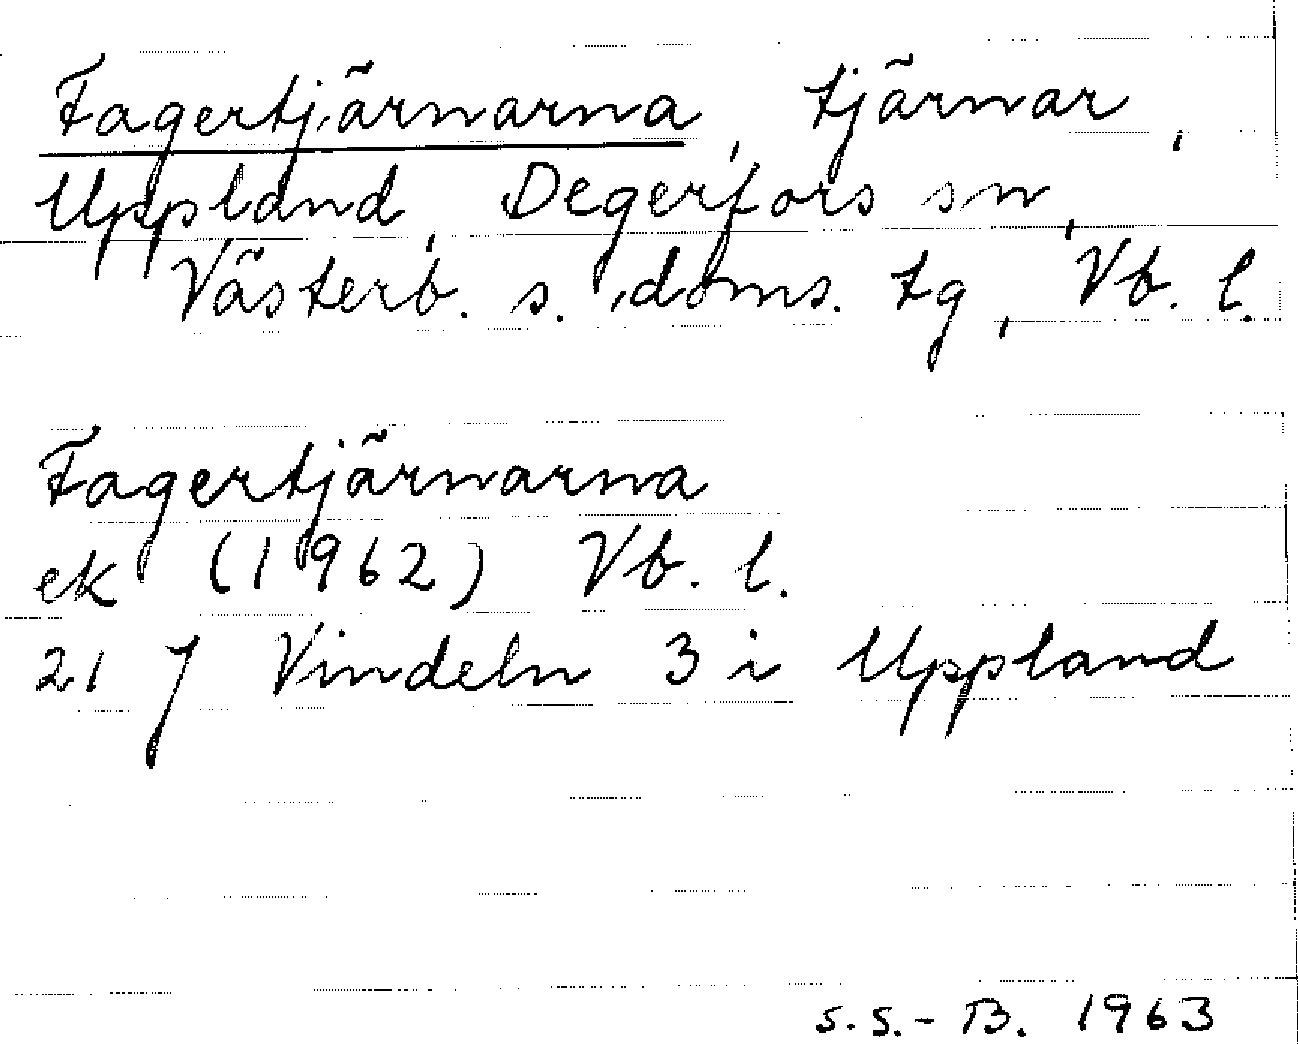 Fagertjärnarna, tjärnar,
Uppland, Degerfors sn,
Västerb. s. doms. tg, Vb. l.
Fagertjärnarna
ek (1962) Vb. l.
21 J Vindeln 3 i Uppland
S.S.-B. 1963